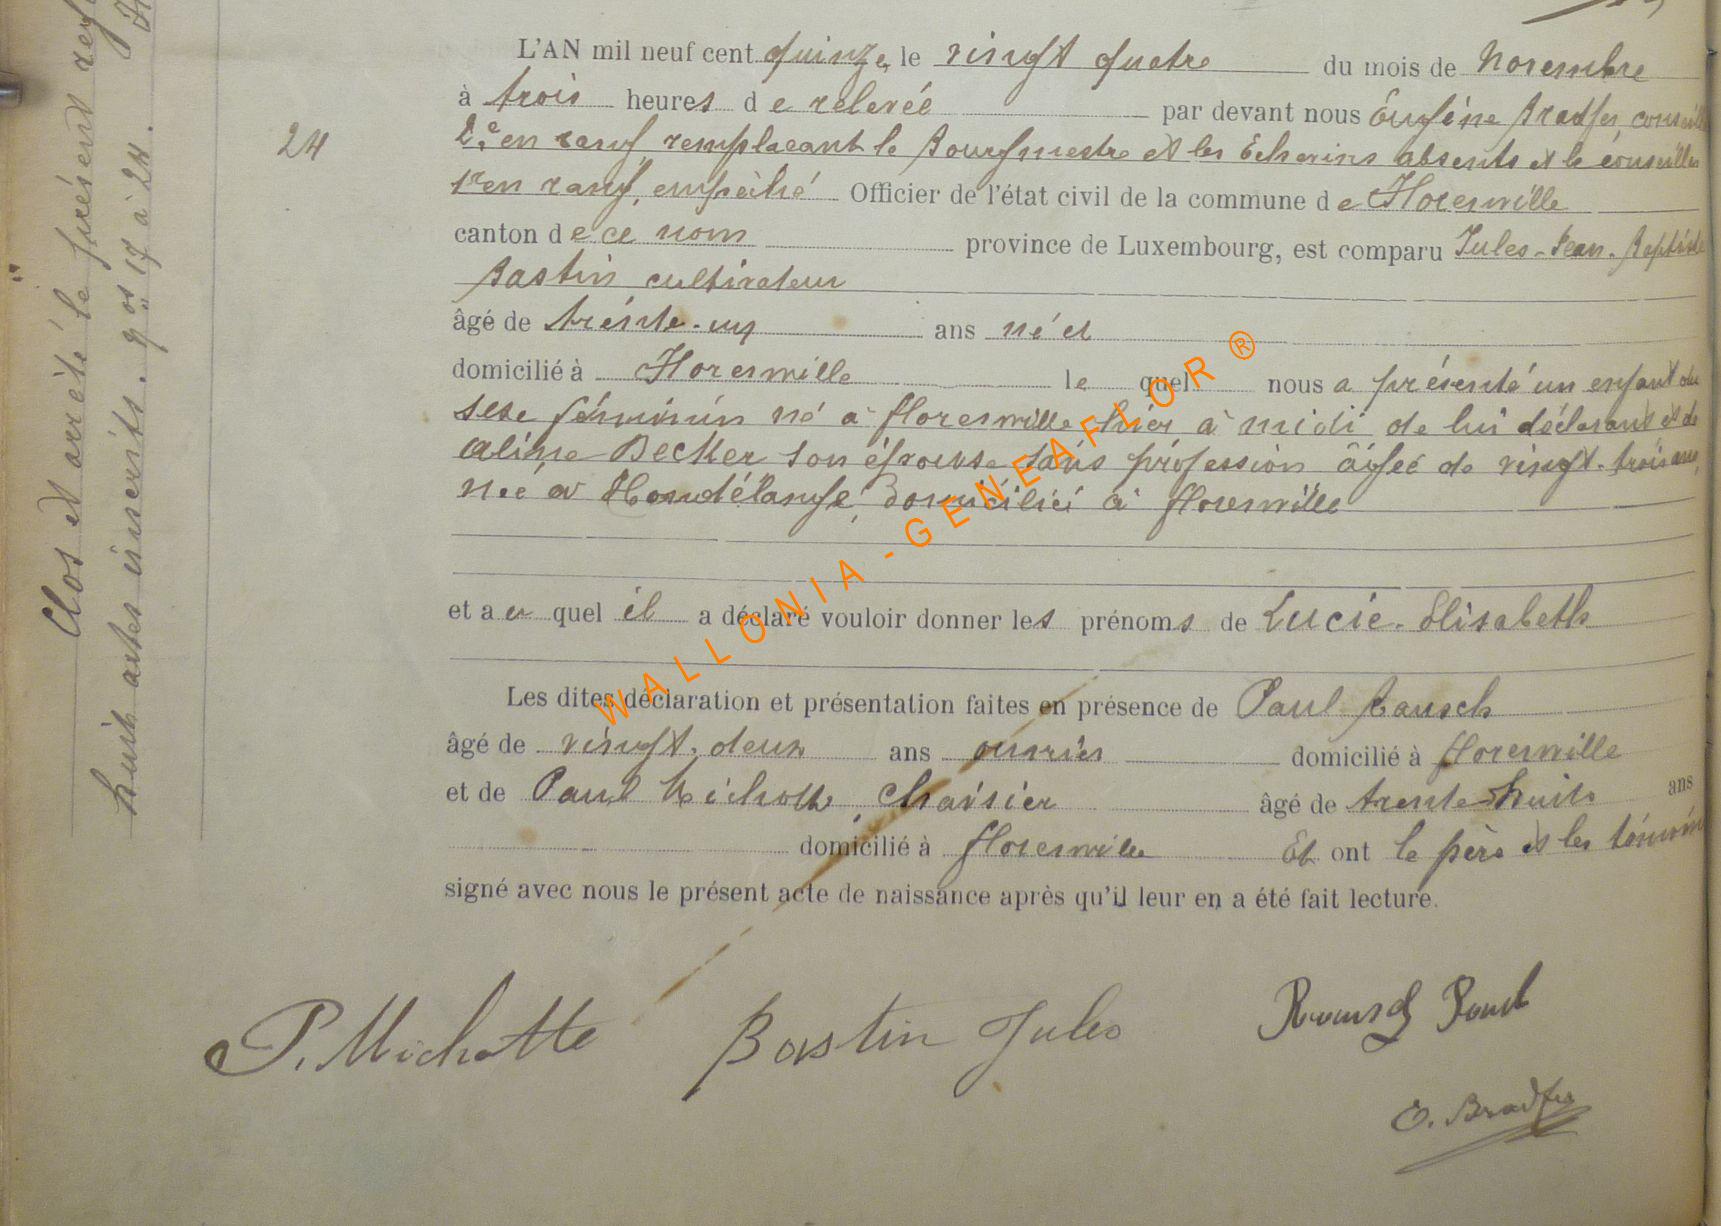 24
L'AN mil neuf cent quinze, le vingt quatre du mois de Novembre
à trois heures de relevée par devant nous Eugène Bradfer, conseiller
2e en rang, remplaçant le Bourgmestre et les Echevins absents et le conseiller
1er en rang, empêché Officier de l'état civil de la commune de Florenville
canton de ce nom province de Luxembourg, est comparu Jules-Jean-Baptiste
Bastin cultivateur
âgé de trente-un ans né et
domicilié à Florenville lequel nous a présenté un enfant du
sexe féminin né à Florenville hier à midi de lui déclarant et de
Aline Becker son épouse sans profession âgée de vingt-trois ans,
née à Hondelange, domiciliée à Florenville
et auquel il a déclaré vouloir donner les prénoms de Lucie-Elisabeth
Les dites déclaration et présentation faites en présence de Paul Rausch
âgé de vingt-deux ans ouvrier domicilié à Florenville
et de Paul Michotte, chaisier âgé de trente-huit ans
domicilié à Florenville Et ont le père et les témoins
signé avec nous le présent acte de naissance après qu'il leur en a été fait lecture.
P. Michotte Bastin Jules Rausch Paul
E. Bradfer
Clos et arrêté le présent
huit actes inscrits. nos 17 à 24.
WALLONIA-GENEA-FLOR ®